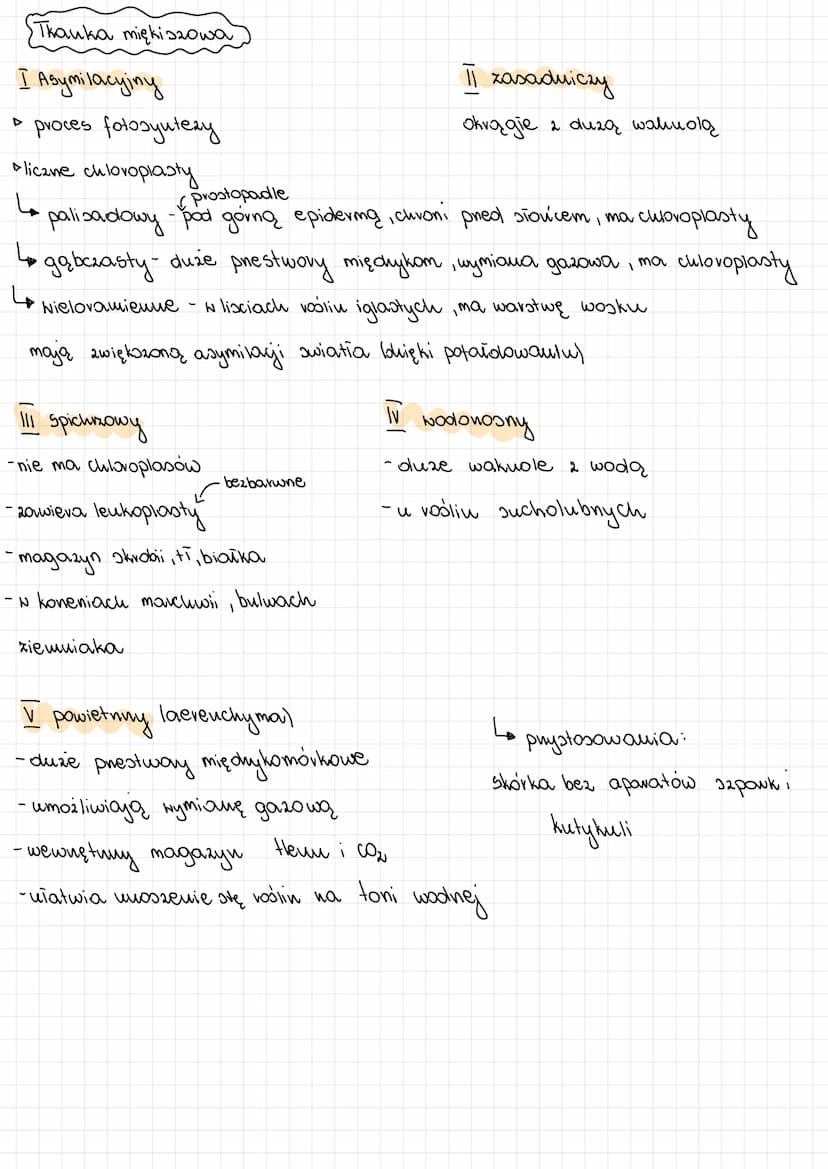 Tkanka miękiszowa
I Asymilacyjny
▹ proces fotosyntezy
▹ liczne chloroplasty
prostopadle
↳ palisadowy - pod górną epidermą, chroni przed słońcem, ma chloroplasty
↳ gąbczasty - duże przestwory międzykom, wymiana gazowa, ma chloroplasty
↳ wieloramienne - w liściach roślin iglastych, ma warstwę wosku
mają zwiększoną asymilacji światła (dzięki pofałdowaniu)
II zasadniczy
okrągłe z dużą wakuolą
III Spichrzowy
- nie ma chloroplasów
bezbarwne
- zawiera leukoplasty
- magazyn skrobii, tł, białka
- w korzeniach marchwii, bulwach
ziemniaka
IV wodonosny
- duże wakuole z wodą
- u roślin sucholubnych
V powietrzny (aerenchyma)
- duże przestwory międzykomórkowe
- umożliwiają wymianę gazową
- wewnętrzny magazyn tlenu i CO₂
- ułatwia unoszenie się roślin na toni wodnej
↳ przystosowania:
skórka bez aparatów szpark i
kutykuli